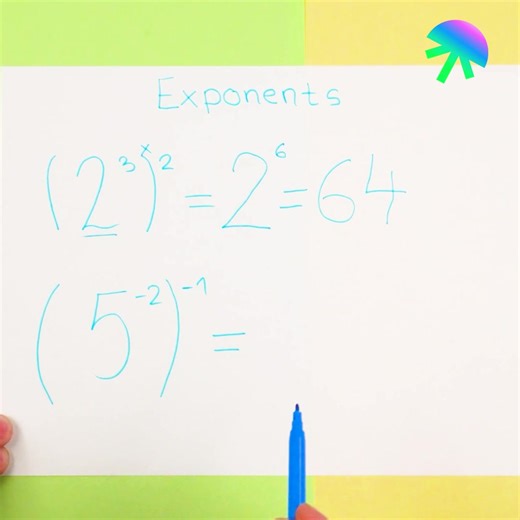 Exponents
(2³ˣ)² = 2⁶ = 64
(5⁻²)⁻¹ =